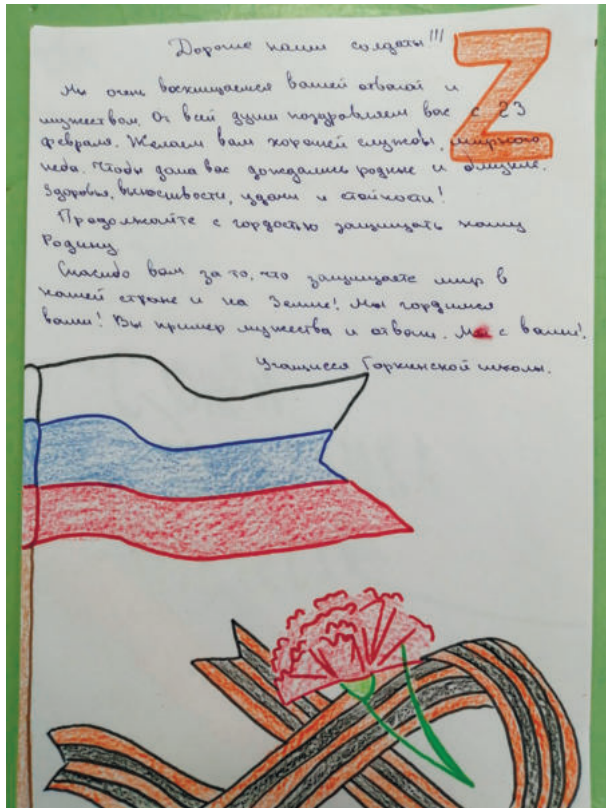 Дорогие наши солдаты!!!
Z
Мы очень восхищаемся вашей отвагой и
мужеством. От всей души поздравляем вас с 23
февраля. Желаем вам хорошей службы, мирного
неба. Чтобы дома вас дождались родные и близкие.
Здоровья, выносливости, удачи и стойкости!
Продолжайте с гордостью защищать нашу
Родину
Спасибо вам за то, что защищаете мир в
нашей стране и на Земле! Мы гордимся
вами! Вы пример мужества и отваги. Мы с вами!
Учащиеся Горкинской школы.